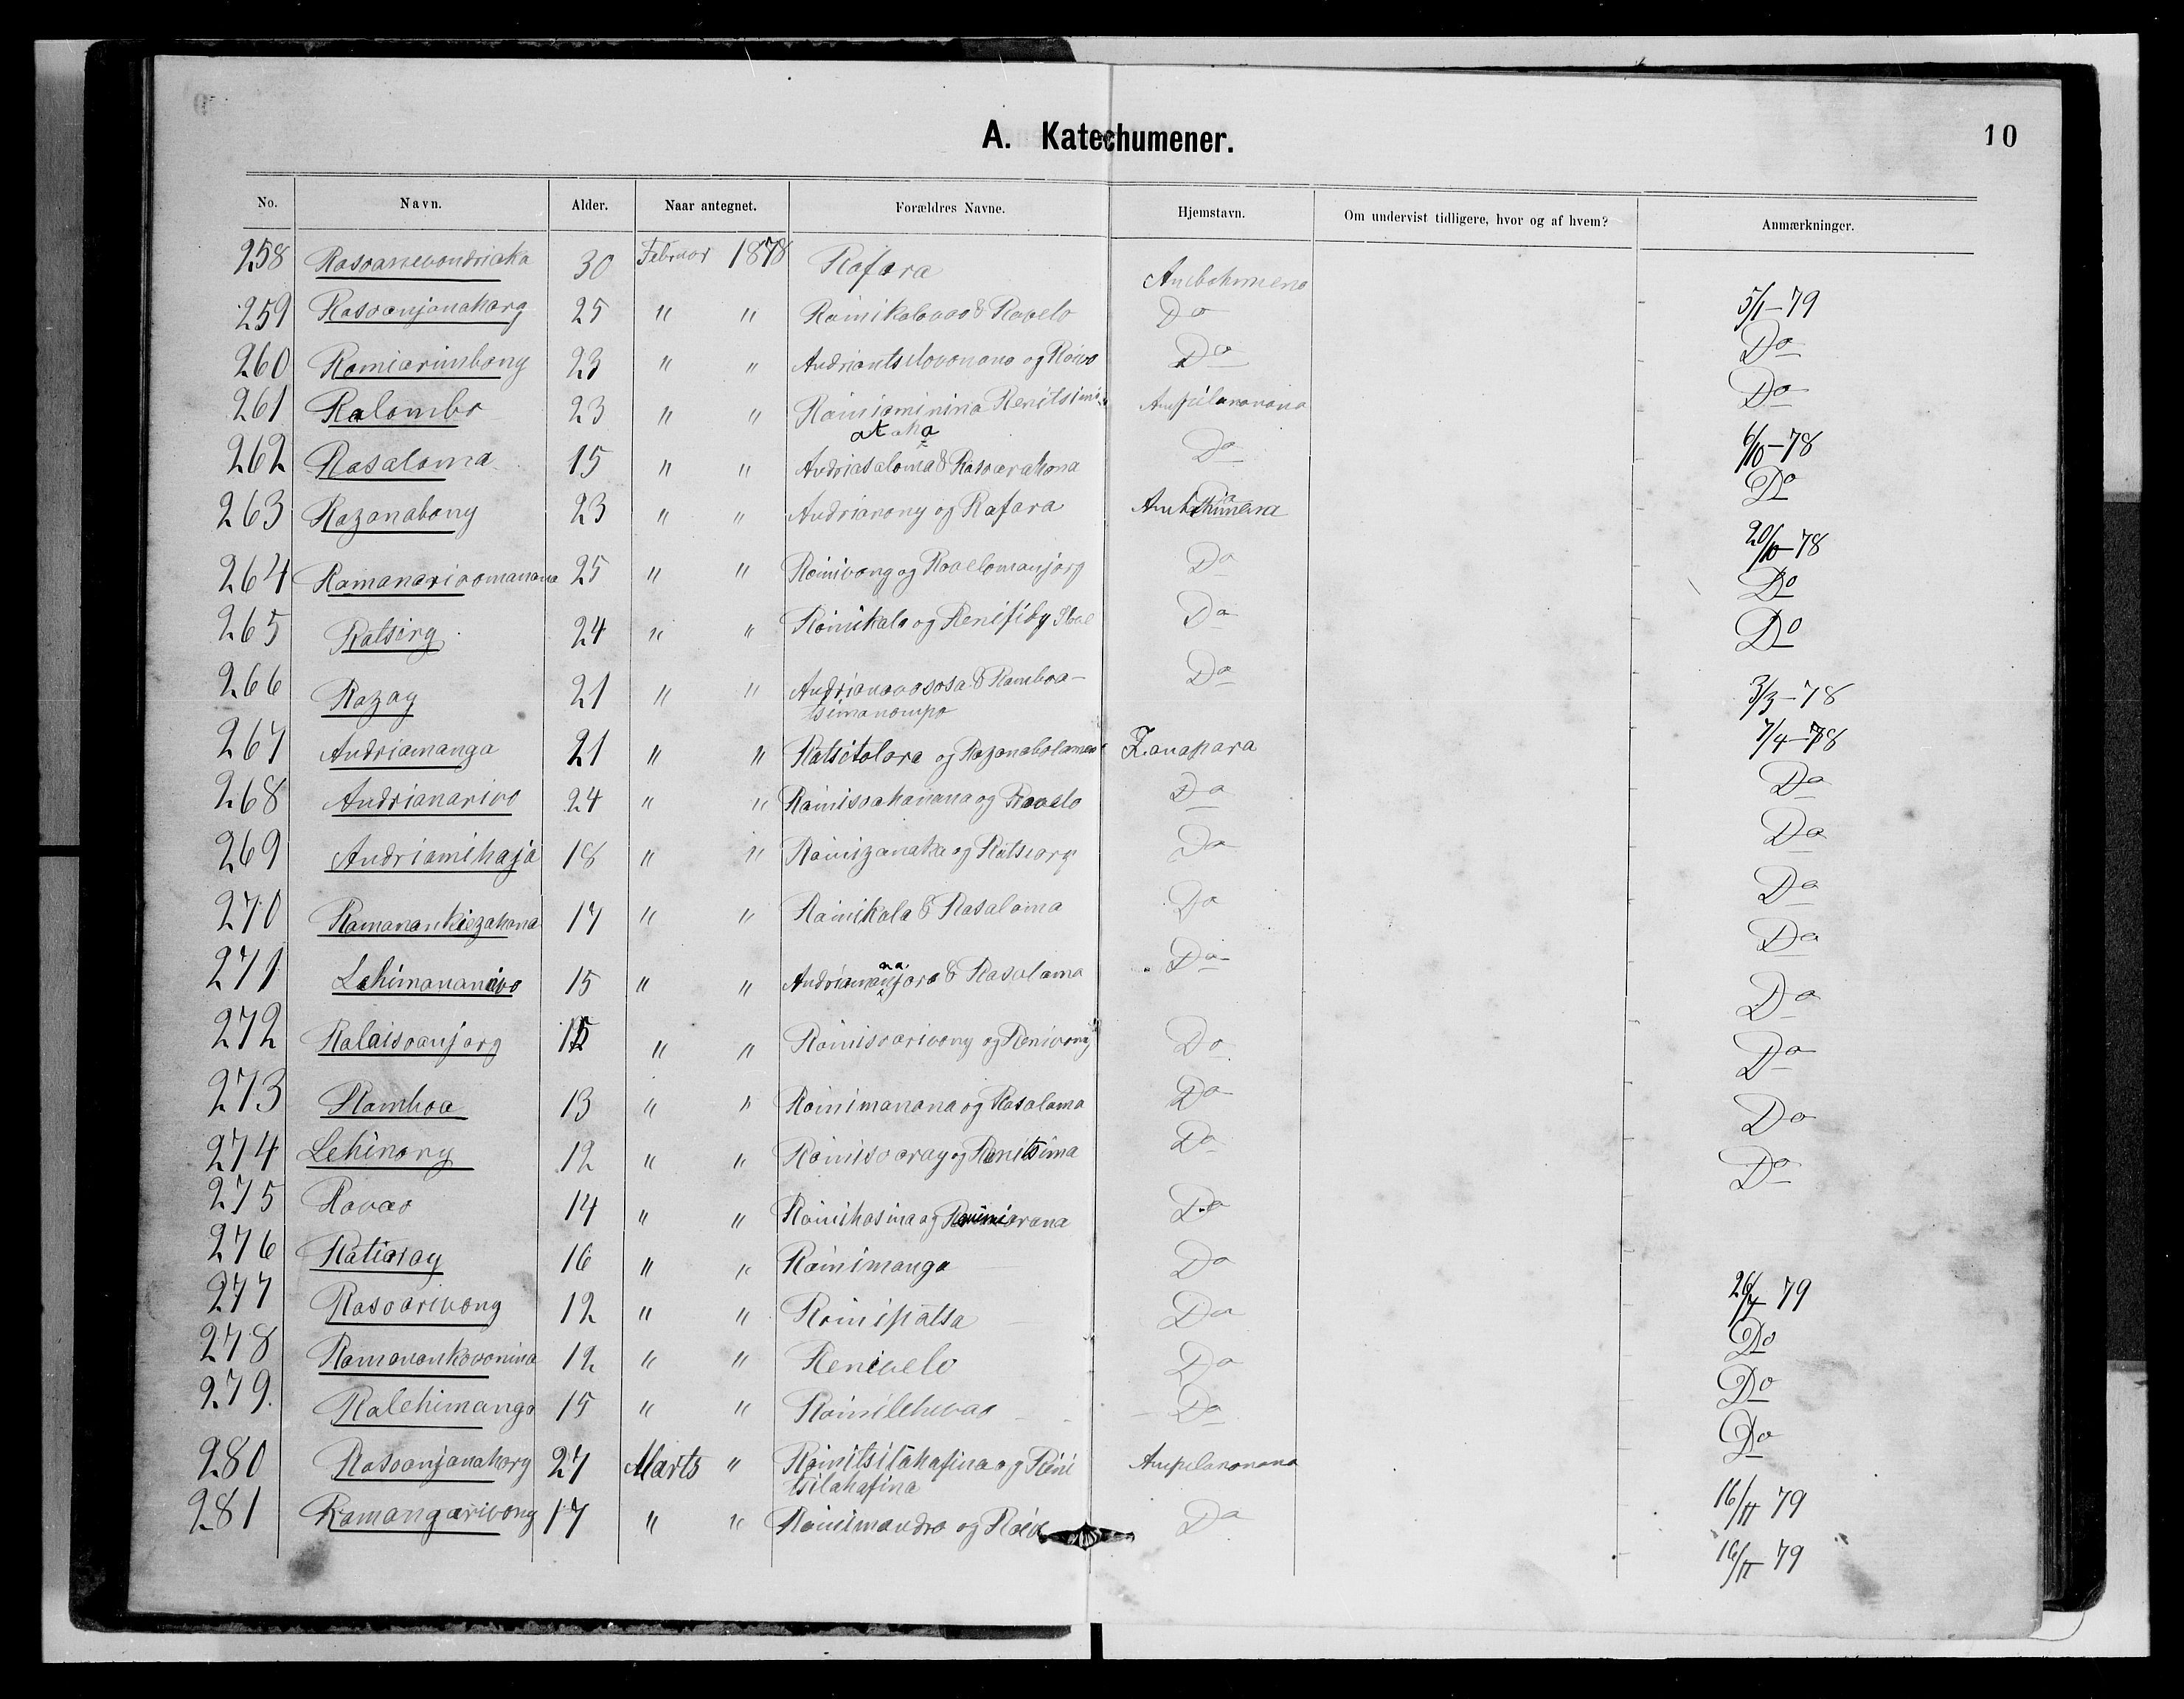 A. Katechumener.
10
No. Navn. Alder. Naar antegnet. Forældres Navne. Hjemstavn. Om undervist tidligere, hvor og af hvem? Anmærkninger.
258 Rasoanevondriaka 30 Februar 1878 Rafara Ambohimena 5/1-79
259 Rasoanjanahary 25 " " Rainikalovao & Ravelo Do Do
260 Ramiarimbony 23 " " Andriantselovonana og Raivo Do Do
261 Ralambo 23 " " Rainiaminina Renitsimi- Ampilanonana 6/10-78
ataha
262 Rasaloma 15 " " Andriasaloma & Rasoarahona Do Do
263 Razanabony 23 " " Andrianony og Rafara Ambohimena 20/10-78
264 Ramanarivomanana 25 " " Rainivony og Ravelomanjary Do Do
265 Ratsiry 24 " " Rainikala og Renifiby Do Do
266 Razay 21 " " Andrianavosoa & Ramboa- Do 3/3-78
tsimanompo
267 Andriamanga 21 " " Ratsitolora og Razanabolamena Zanapara 7/4-78
268 Andrianarivo 24 " " Rainisoahanana og Ravelo Do Do
269 Andriamihaja 18 " " Rainizanaka og Ratseary Do Do
270 Ramanankiezahana 17 " " Rainikala & Rasalama Do Do
271 Lehimananivo 15 " " Andriamananjara & Rasalama Do Do
272 Ralaisoanjary 15 " " Rainisoarivony og Renivony Do Do
273 Ramboa 13 " " Rainimanana og Rasalama Do Do
274 Lehinony 12 " " Rainisoaray og Renitsima Do Do
275 Ravao 14 " " Rainihosina og Do Do
276 Ratiaray 16 " " Rainimanga Do
277 Rasoarivony 12 " " Rainipatsa Do 79
278 Ramanankovonina 12 " " Renivelo Do Do
279. Ralehimanga 15 " " Rainilehivao Do Do
280 Rasoanjanahary 27 Marts " Rainitsilahafina og Reni Ampilanonana Do
tsilahafina
281 Ramangarivony 17 " " Rainimandro og Do 16/11 79
16/11 79